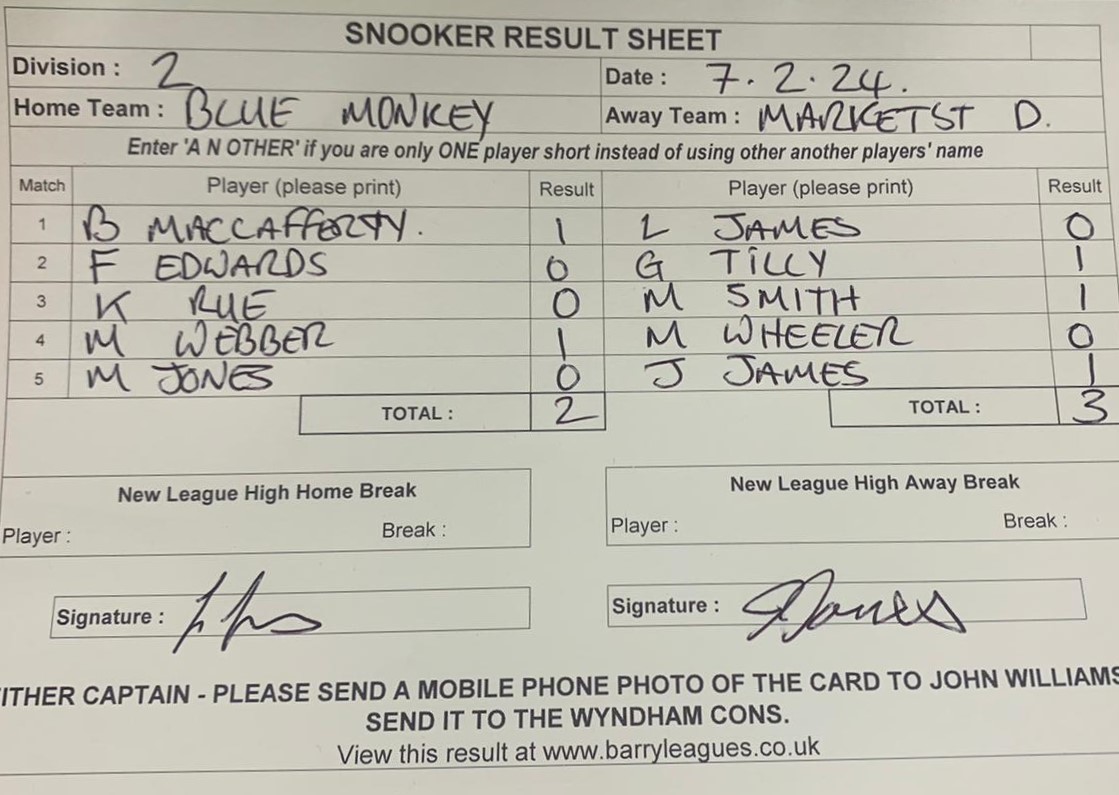 SNOOKER RESULT SHEET
Division : 2 Date : 7.2.24.
Home Team : BLUE MONKEY Away Team : MARKETST D.
Enter 'A N OTHER' if you are only ONE player short instead of using other another players' name
Match Player (please print) Result Player (please print) Result
1 B MACCAFFERTY. 1 L JAMES 0
2 F EDWARDS 0 G TILLY 1
3 K RUE 0 M SMITH 1
4 M WEBBER 1 M WHEELER 0
5 M JONES 0 J JAMES 1
TOTAL : 2 TOTAL : 3
New League High Home Break New League High Away Break
Player : Break : Player : Break :
Signature : Signature :
ITHER CAPTAIN - PLEASE SEND A MOBILE PHONE PHOTO OF THE CARD TO JOHN WILLIAMS
SEND IT TO THE WYNDHAM CONS.
View this result at www.barryleagues.co.uk